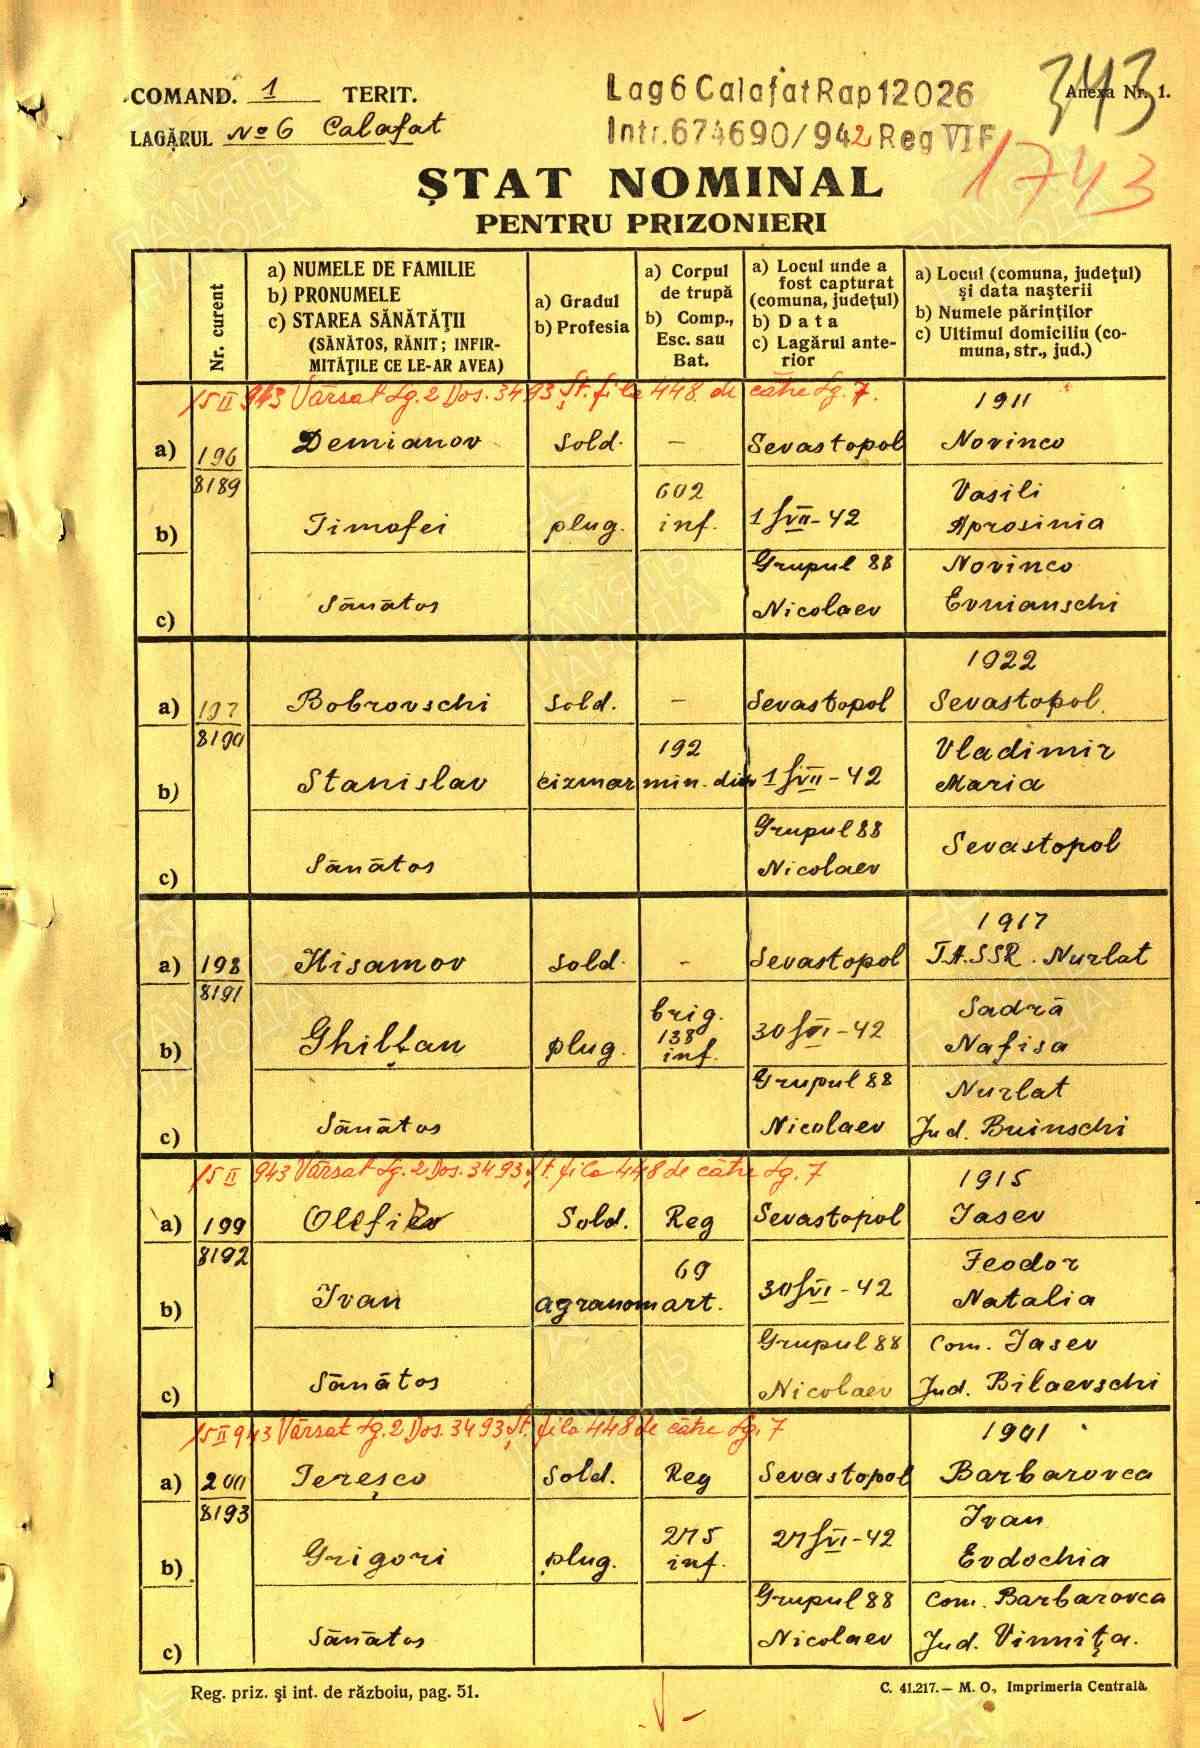 COMAND. 1 TERIT.
LAGĂRUL No 6 Calafat
Lag 6 Calafat Rap 12026
Intr. 674690/942 Reg VI F
Anexa Nr. 1.
343
1743
ȘTAT NOMINAL
PENTRU PRIZONIERI
Nr. curent
a) NUMELE DE FAMILIE
b) PRONUMELE
c) STAREA SĂNĂTĂȚII
(SĂNĂTOS, RĂNIT; INFIR-
MITĂȚILE CE LE-AR AVEA)
a) Gradul
b) Profesia
a) Corpul
de trupă
b) Comp.,
Esc. sau
Bat.
a) Locul unde a
fost capturat
(comuna, județul)
b) Data
c) Lagărul ante-
rior
a) Locul (comuna, județul)
și data nașterii
b) Numele părinților
c) Ultimul domiciliu (co-
muna, str., jud.)
15 II 943 Vărsat Lg. 2 Dos. 3493 Șt. fila 448 de către Lg. 7.
1911
a) 196 Demianov sold. – Sevastopol Novinco
8189
602 Vasili
b) Timofei plug. inf. 1/VII-42 Aprosinia
Grupul 88 Novinco
c) Sănătos Nicolaev Evnianschi
1922
a) 197 Bobrovschi sold. – Sevastopol Sevastopol
8190
192 Vladimir
b) Stanislav cizmar min. div 1/VII-42 Maria
Grupul 88
c) Sănătos Nicolaev Sevastopol
1917
a) 198 Hisamov sold. – Sevastopol T.A.SSR. Nurlat
8191
brig. Sadră
b) Ghilțan plug. 138 inf. 30/VI-42 Nafisa
Grupul 88 Nurlat
c) Sănătos Nicolaev Jud. Buinschi
15 II 943 Vărsat Lg. 2 Dos. 3493 Șt. fila 448 de către Lg. 7
1915
a) 199 Sold. Reg Sevastopol Iasev
8192
69 Feodor
b) Ivan agranom art. 30/VI-42 Natalia
Grupul 88 Com. Iasev
c) Sănătos Nicolaev Jud. Bilaevschi
15 II 943 Vărsat Lg. 2 Dos. 3493 Șt. fila 448 de către Lg. 7
1901
a) 200 Tereșco sold. Reg Sevastopol Barbarovca
8193
275 Ivan
b) Grigori plug. inf. 27/VI-42 Evdochia
Grupul 88 Com. Barbarovca
c) Sănătos Nicolaev Jud. Vinnița.
Reg. priz. și int. de războiu, pag. 51.
C. 41.217.— M. O., Imprimeria Centrală